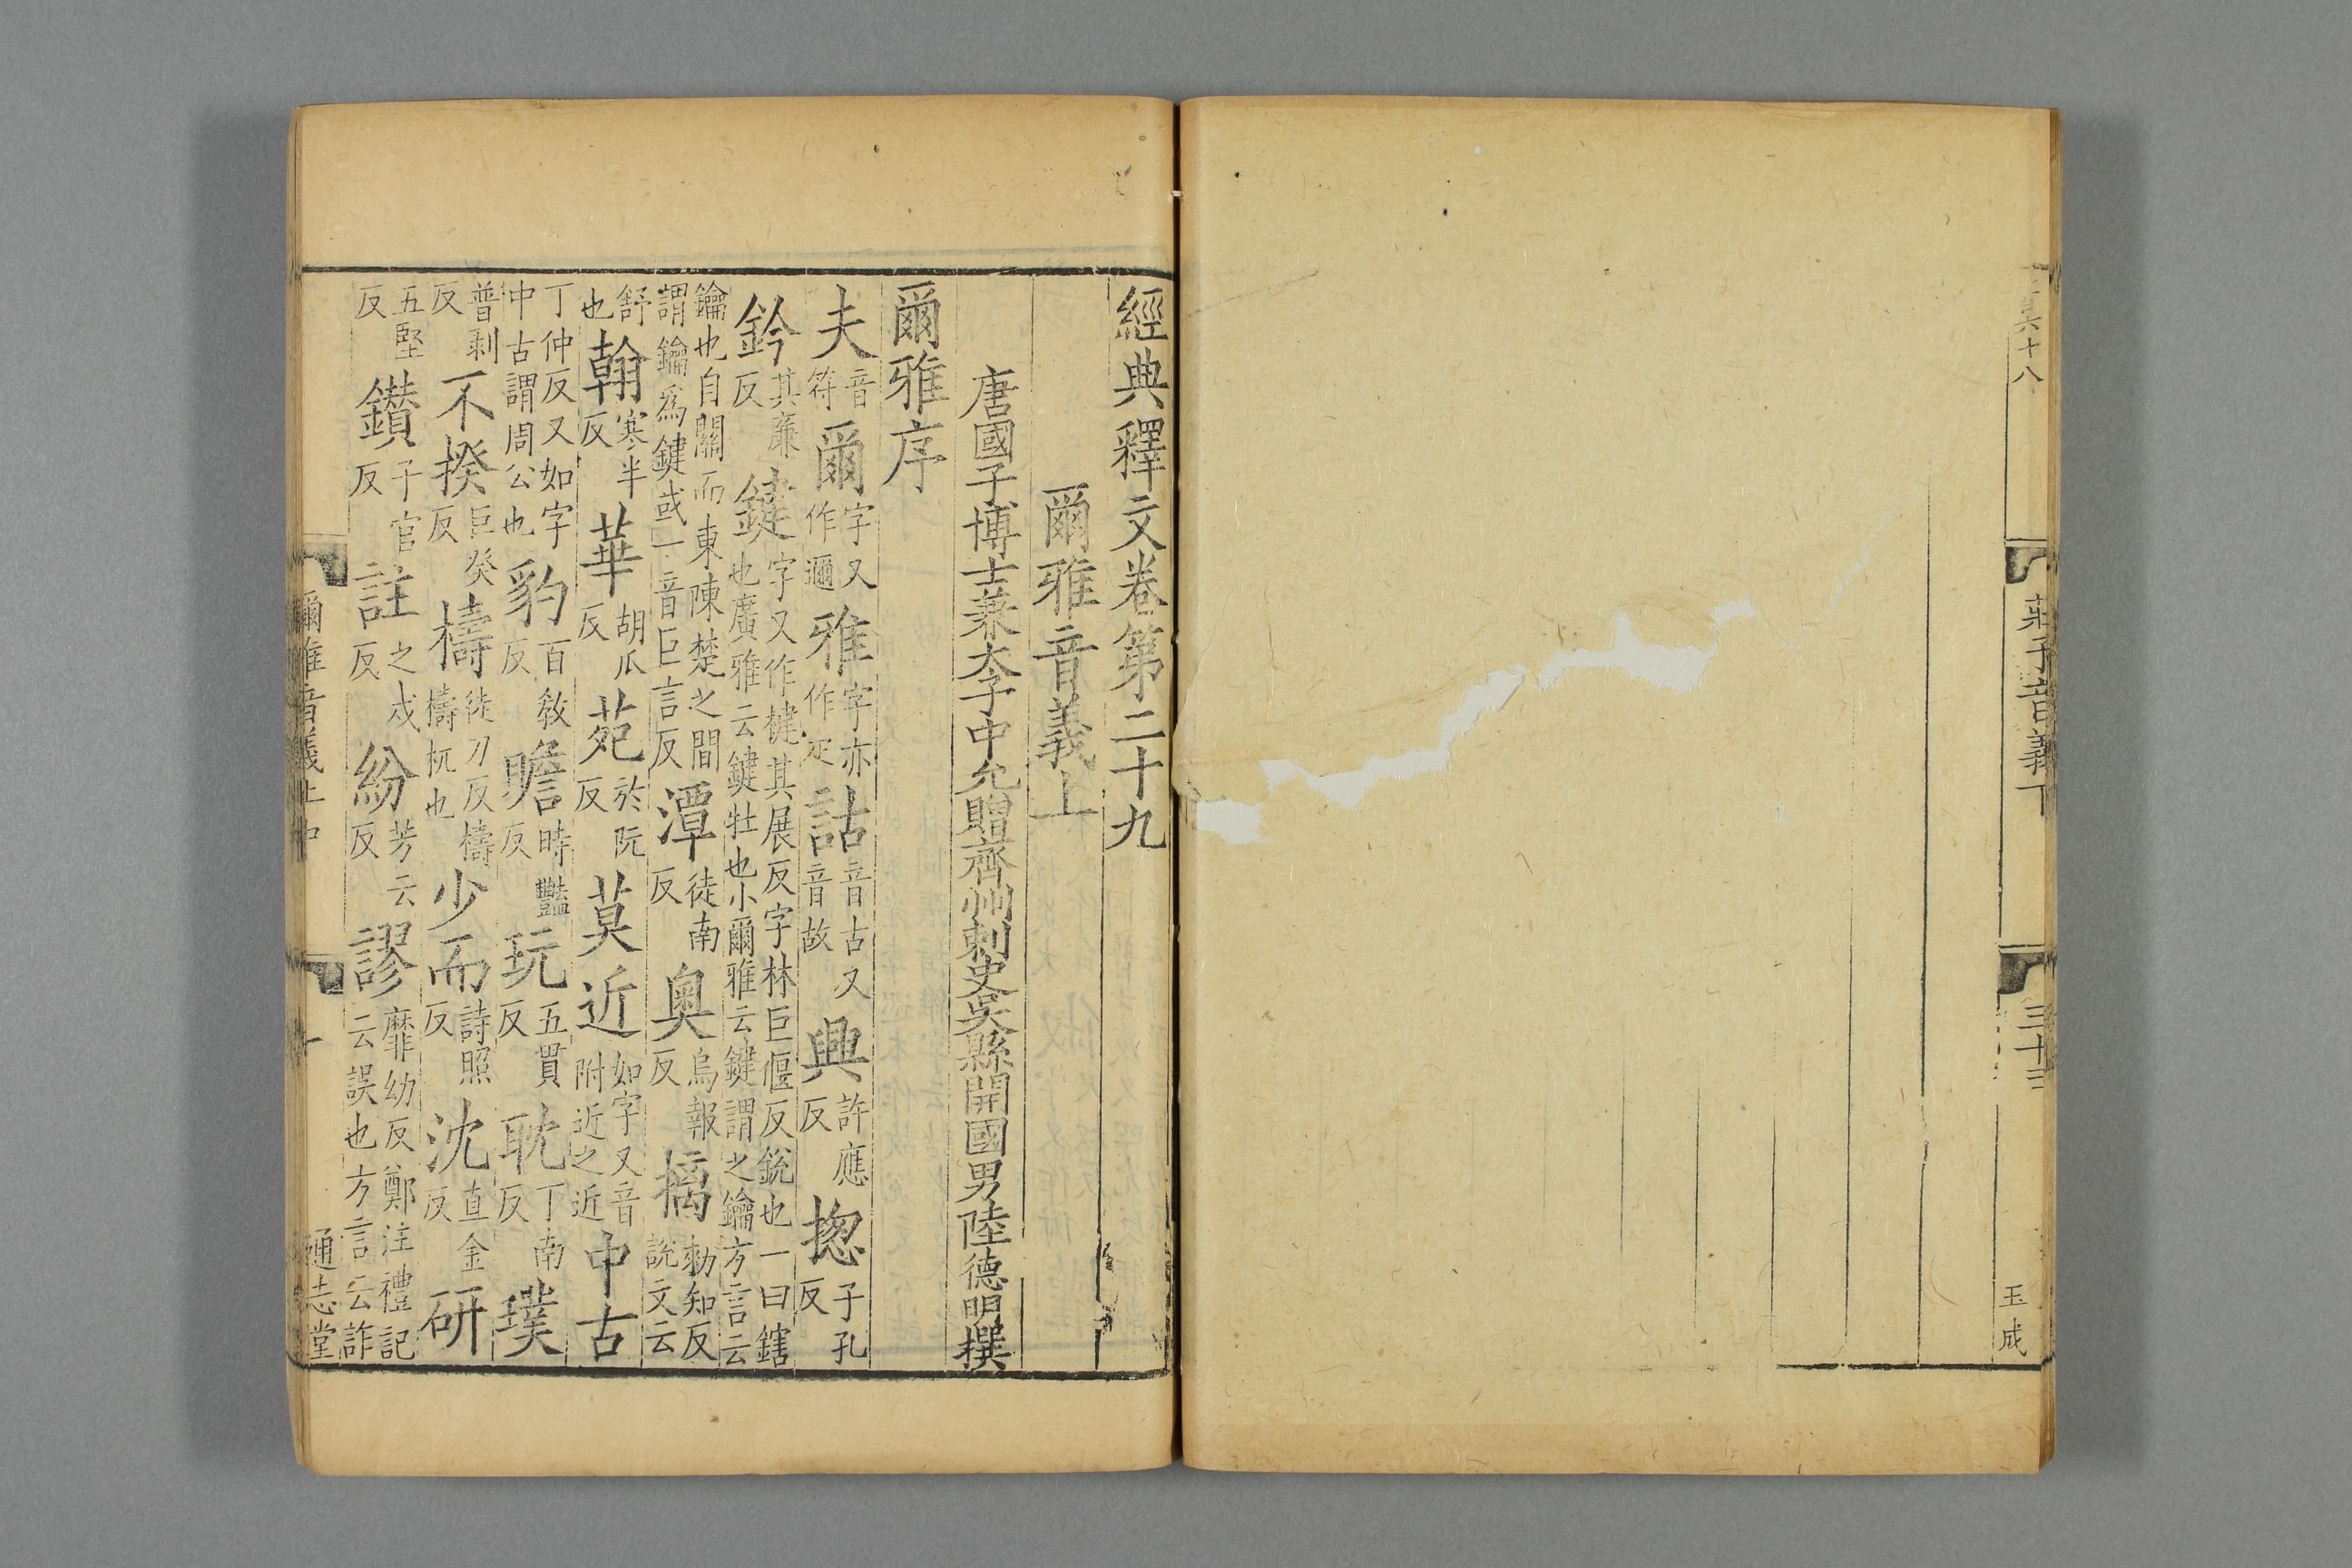 六十八
莊子音義下
三十三
玉成
經典釋文卷第二十九
爾雅音義上
唐國子博士兼太子中允贈齊州刺史吳縣開國男陸德明撰
爾雅序
夫音符爾字又作邇雅字亦作疋詁音古又音故興許應反揔子孔反
鈐其廉反鍵字又作楗其展反字林巨偃反銳也一曰鎋也廣雅云鍵牡也小爾雅云鍵謂之鑰方言云
鑰也自關而東陳楚之間謂鑰爲鍵或一音巨言反潭徒南反奧烏報反摛勑知反說文云
舒也翰寒半反華胡瓜反苑於阮反莫近如字又音附近之近中古
丁仲反又如字中古謂周公也豹百敎反瞻時豔反玩五貫反耽丁南反璞
普剥反不揆巨癸反檮徒刀反檮檮杌也少而詩照反沈直金反研
五堅反鑚子官反註之戍反紛芳云反謬靡幼反鄭注禮記云誤也方言云詐
爾雅音義上中
一
通志堂